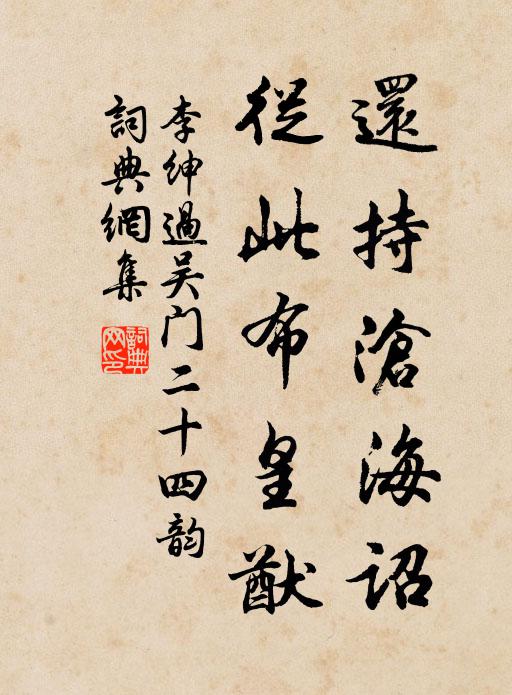 還持滄海詔
從此布皇猷
李绅過吴门二十四韵
詞典網集
詞典網印